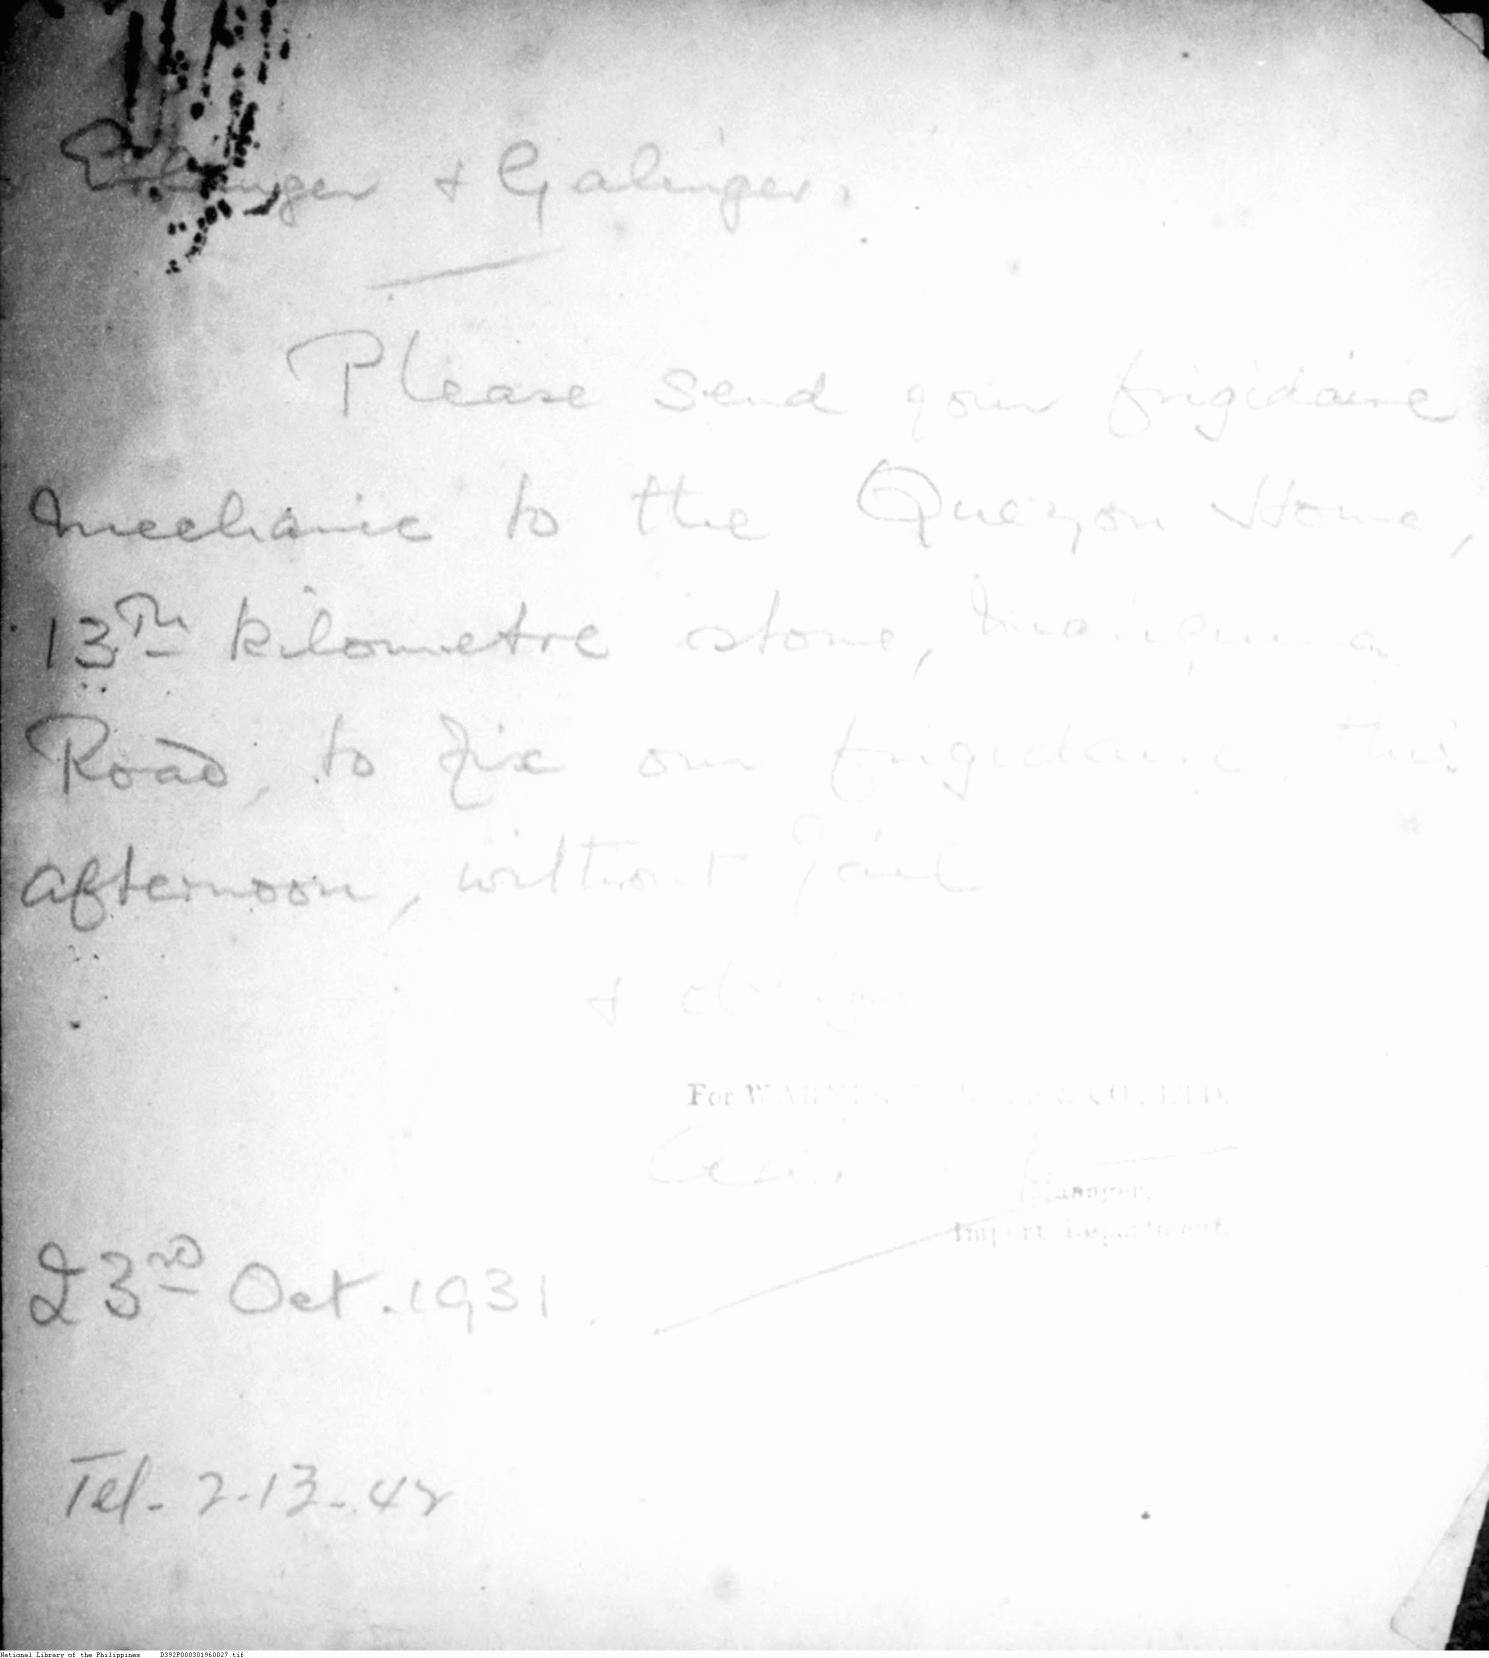 Erlanger & Galinger.
Please send your frigidaire
mechanic to the Quezon Home,
13th kilometre stone, Mariquina
Road, to fix our frigidaire this
afternoon, without fail
& charge
For CO. LTD.
Manager,
Import Department.
23rd Oct. 1931.
Tel. 2-13-42
National Library of the Philippines D392P000301960027.tif